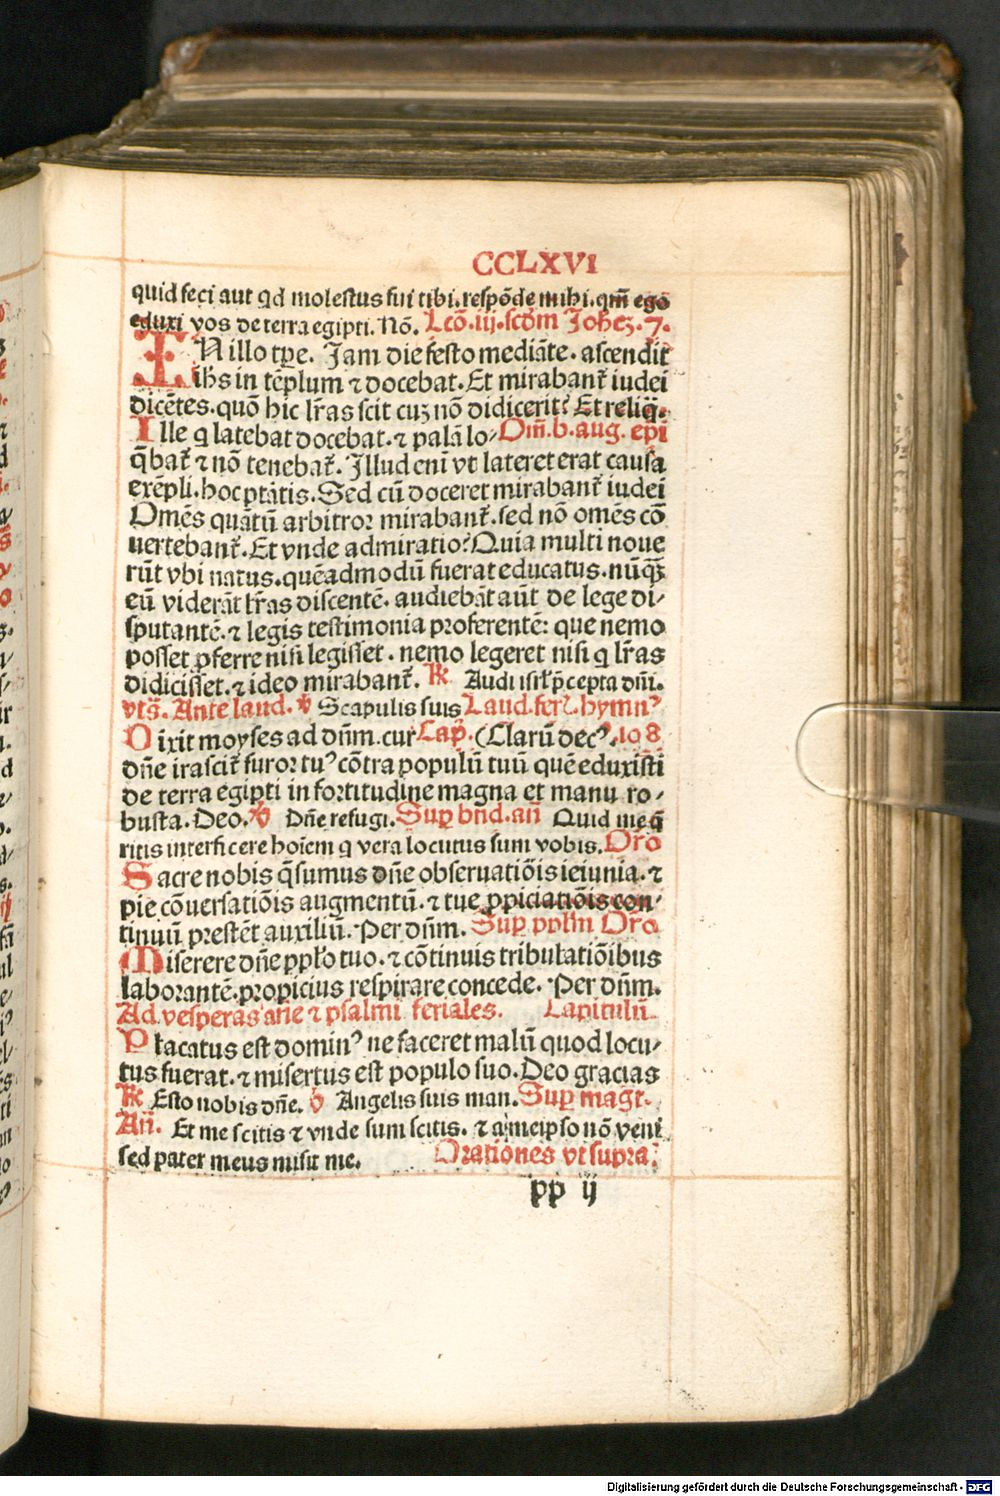 CCLXVI
quid feci aut qd molestus fui tibi.respõde mihi.qm̃ ego
eduxi vos de terra egipti. Nõ. Leõ.iij.scđm Johеꝫ.7.
IN illo tꝑe. Jam die festo mediãte. ascendit
ihs in tẽplum ⁊ docebat. Et mirabant̃ iudei
dicẽtes.quõ hic lr̃as scit cuꝫ nõ didicerit? Et reliq̃.
Ille q latebat docebat.⁊ palã lo⸗ Om̃.b.aug. ep̃i
q̃bat̃ ⁊ nõ tenebat̃. Illud eni̅ vt lateret erat causa
exẽpli.hoc ptãtis. Sed cũ doceret mirabant̃ iudei
Omẽs quãtũ arbitror mirabant̃.sed nõ omẽs cõ
uertebant̃. Et vnde admiratio? Quia multi noue
rũt vbi natus.quẽadmodũ fuerat educatus.nũqꝫ̃
eũ viderãt lr̃as discentẽ. audiebãt aũt de lege di⸗
sputantẽ.⁊ legis testimonia proferentẽ: que nemo
posset ꝓferre nisi legisset. nemo legeret nisi q lr̃as
didicisset.⁊ ideo mirabant̃. ℟ Audi isrl̃ p̃cepta dñi.
vts̃. Ante laud. ℣ Scapulis suis Laud.ferl̃.hymnꝰ
Dixit moyses ad dñm.cur Cap̃. (Clarũ decꝰ.108
dñe irascit̃ furor tuꝰ cõtra populũ tuũ quẽ eduxisti
de terra egipti in fortitudine magna et manu ro⸗
busta. Deo. ℣ Dñe refugi. Suꝑ bñd.añ Quid me q̃
ritis interficere hoĩem q vera locutus sum vobis. Oro
Sacre nobis q̃sumus dñe obseruatiõis ieiunia.⁊
pie cõuersatiõis augmentũ.⁊ tue ꝓpiciatiõis con⸗
tinuũ prestẽt auxiliũ. Per dñm. Suꝑ pplm̃ Oro
Miserere dñe pplo tuo.⁊ cõtinuis tribulatiõibus
laborantẽ.propicius respirare concede. Per dñm.
Ad vesperas añe ⁊ psalmi feriales. Capitulũ.
Placatus est dominꝰ ne faceret malũ quod locu⸗
tus fuerat.⁊ misertus est populo suo. Deo gracias
℟ Esto nobis dñe. ℣ Angelis suis man. Suꝑ magt̃.
Añ. Et me scitis ⁊ vnde sum scitis. ⁊ a meipso nõ veni
sed pater meus misit me. Orationes vt supra.
pp ij
Digitalisierung gefördert durch die Deutsche Forschungsgemeinschaft - DFG